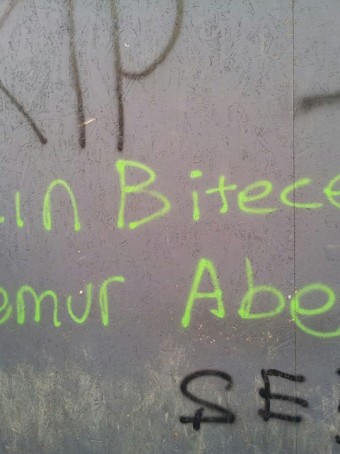 RIP
ın Bitece
emur Abe
SE